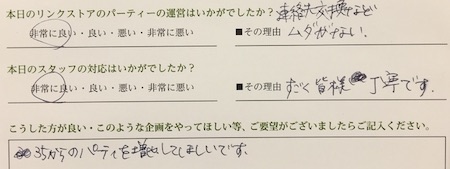 本日のリンクストアのパーティーの運営はいかがでしたか？
非常に良い・良い・悪い・非常に悪い
■その理由 連絡先交換など
ムダがない.
本日のスタッフの対応はいかがでしたか？
非常に良い・良い・悪い・非常に悪い
■その理由 すごく皆様 丁寧です.
こうした方が良い・このような企画をやってほしい等、ご要望がございましたらご記入ください。
35からのパーティを増やしてほしいです.